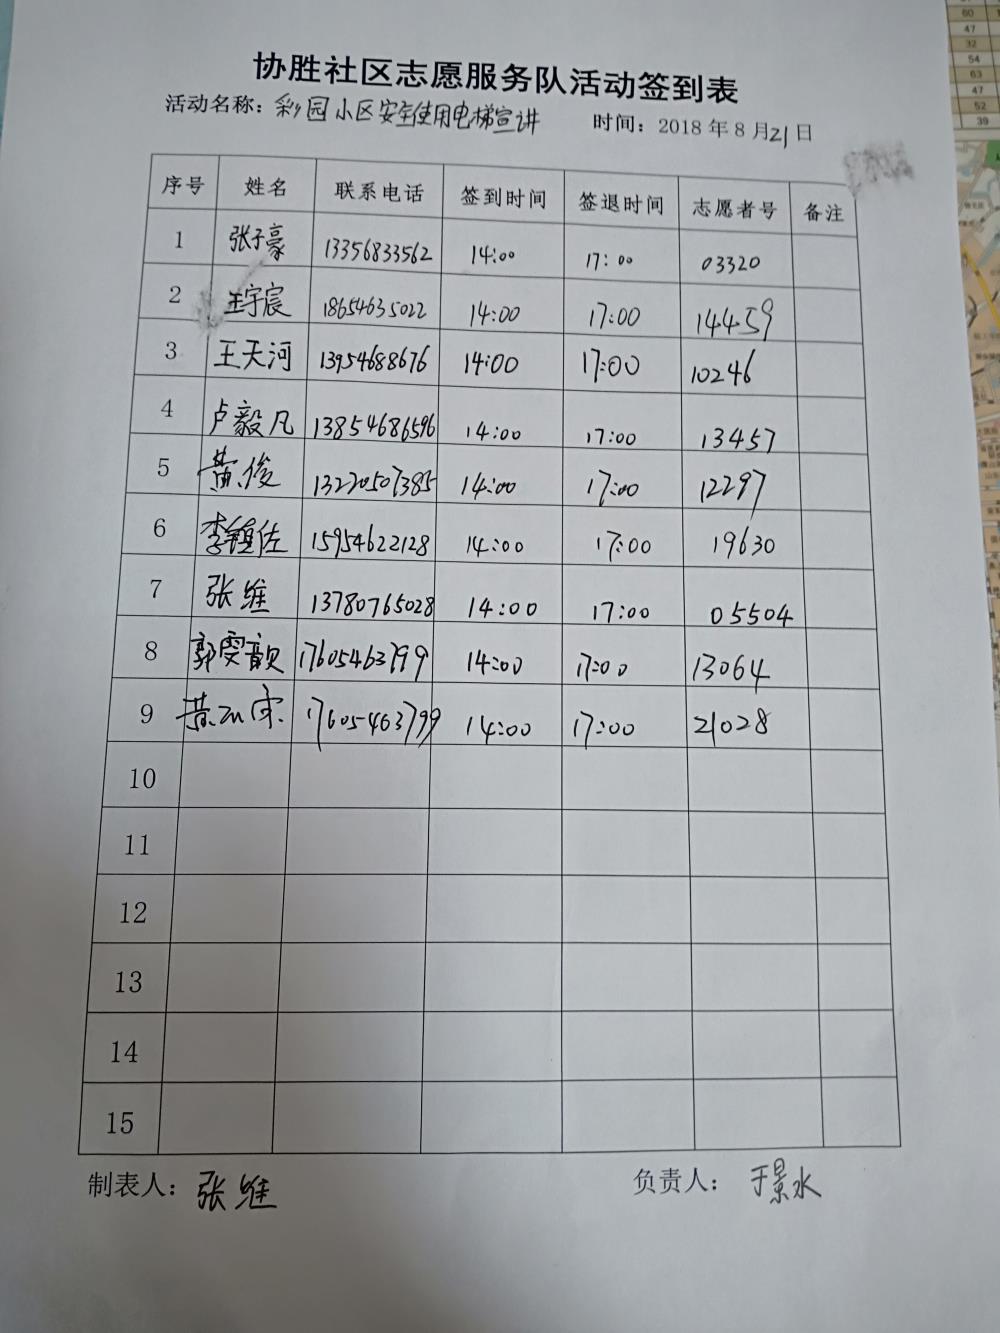 协胜社区志愿服务队活动签到表
活动名称：彩园小区安全使用电梯宣讲 时间：2018年8月21日
序号 姓名 联系电话 签到时间 签退时间 志愿者号 备注
1 张子豪 13356833562 14:00 17:00 03320
2 王宇宸 18654635022 14:00 17:00 14459
3 王天河 13954688676 14:00 17:00 10246
4 卢毅凡 13854686596 14:00 17:00 13457
5 黄俊 13220507385 14:00 17:00 12297
6 李镇佐 15954622128 14:00 17:00 19630
7 张维 13780765028 14:00 17:00 05504
8 郭雯歆 17605463799 14:00 17:00 13064
9 17605463799 14:00 17:00 21028
10
11
12
13
14
15
制表人：张维 负责人：于景水
60
47
32
54
63
47
52
39